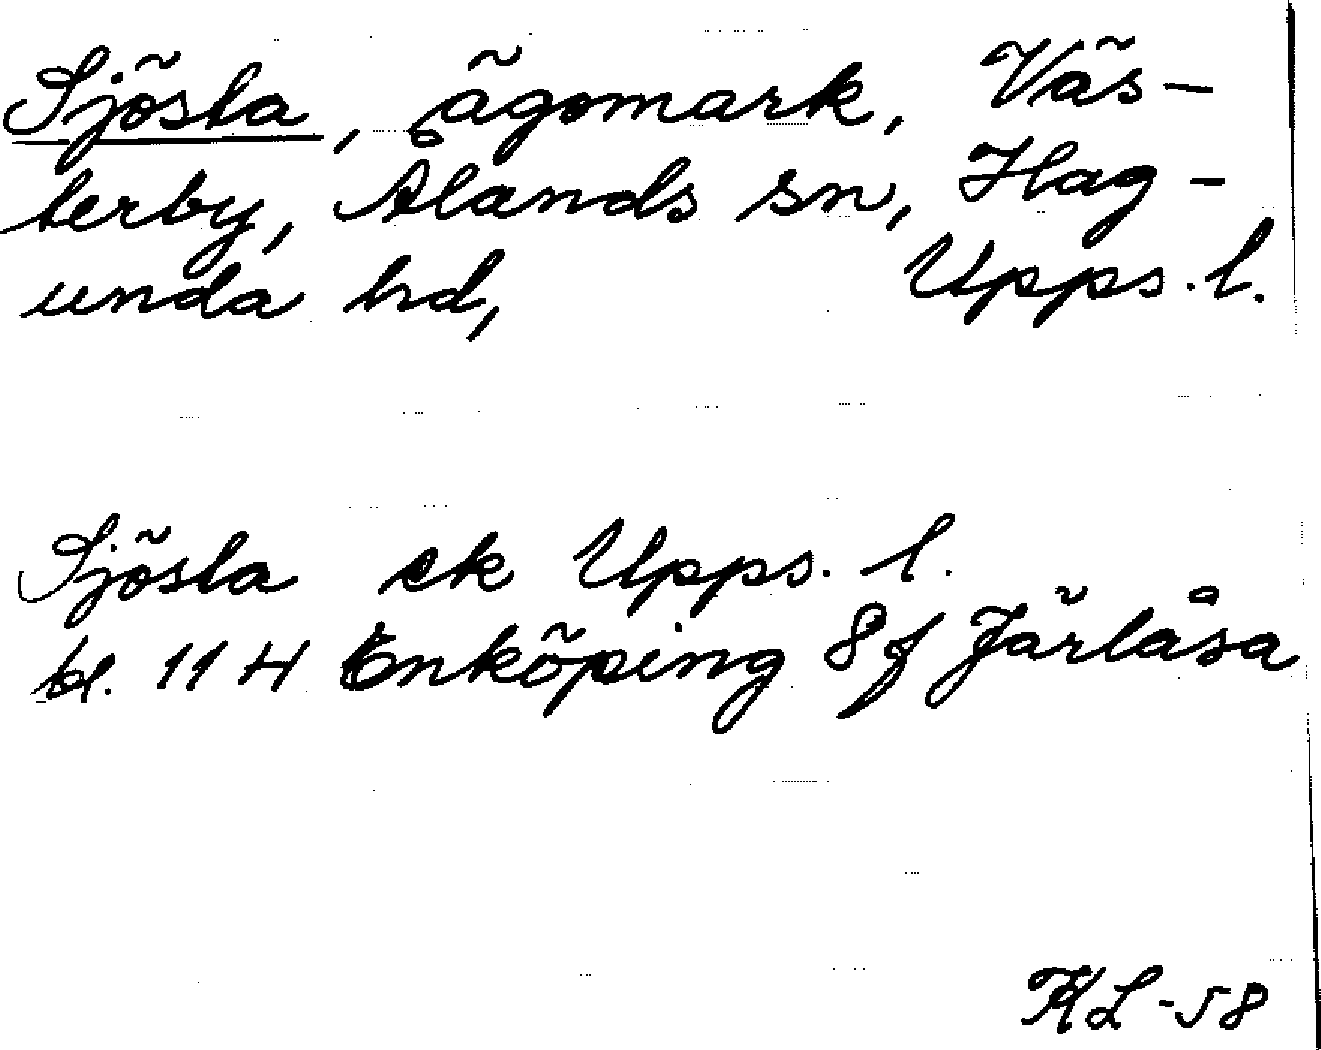 Sjösta, ägomark, Väs-
terby, Ålands sn, Hag-
unda hd, Upps. l.
Sjösta ek Upps. l.
bl. 11 H Enköping 8f Järlåsa
KL-58